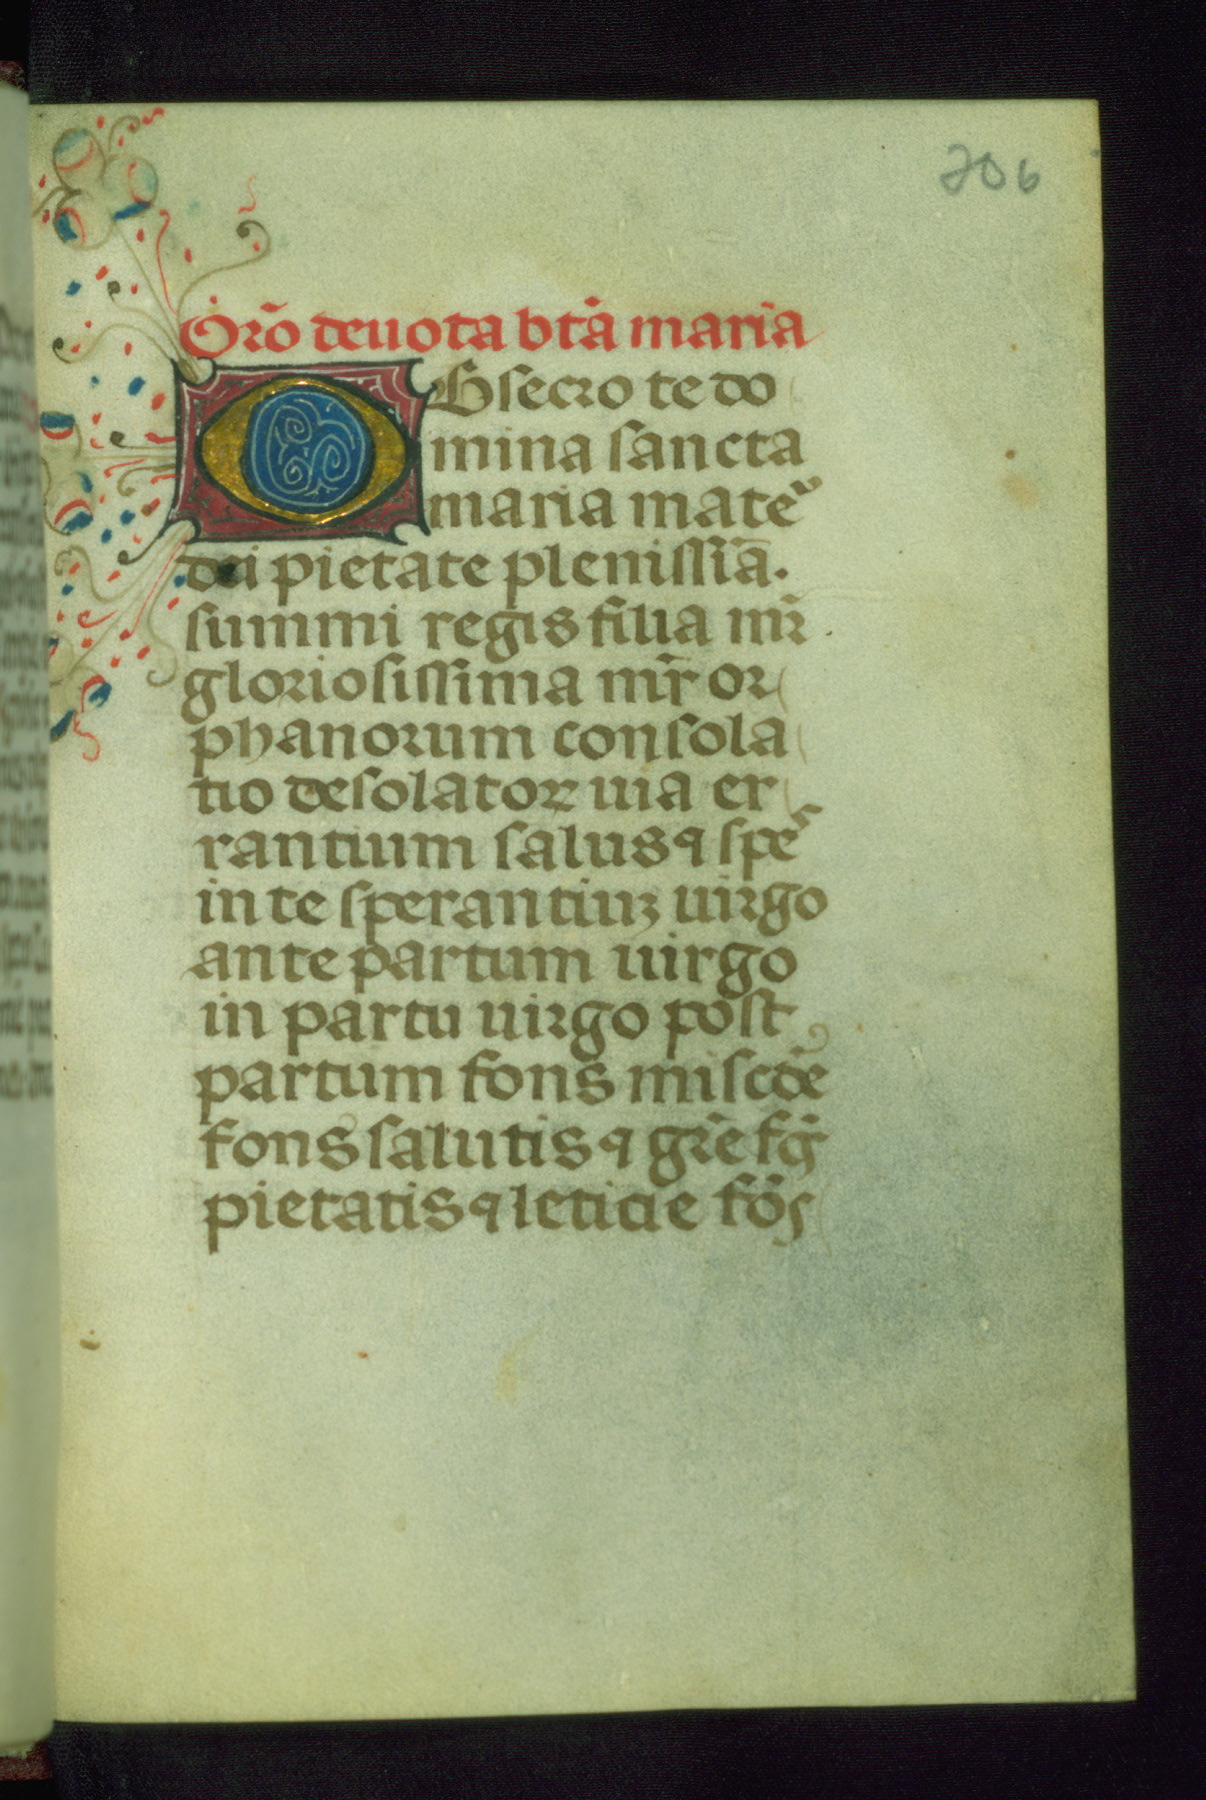 206
Orõ deuota btã maria
OBsecro te do
mina sancta
maria mater
dei pietate plenissiã.
summi regis filia mr̃
gloriosissima mr̃ or
phanorum consola
tio desolatoꝝ uia er
rantium salus ꝯ spes
in te sperantiuꝫ uirgo
ante partum uirgo
in partu uirgo post
partum fons miscdẽ
fons salutis ꝯ gr̃e
pietatis ꝯ leticie fõs